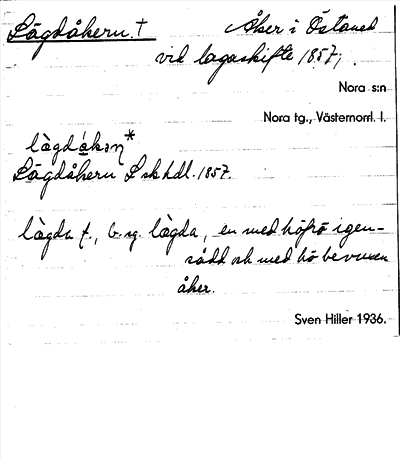 Lägdåkern. † Åker i Östaned
vid lagaskifte 1857;
Nora s:n
Nora tg., Västernorrl. l.
lægdåkəṇ*
Lägdåkern L sk hdl. 1857.
lægda f., b. sg. lægda, en med höfrö igen-
sådd och med hö bevuxen
åker.
Sven Hiller 1936.